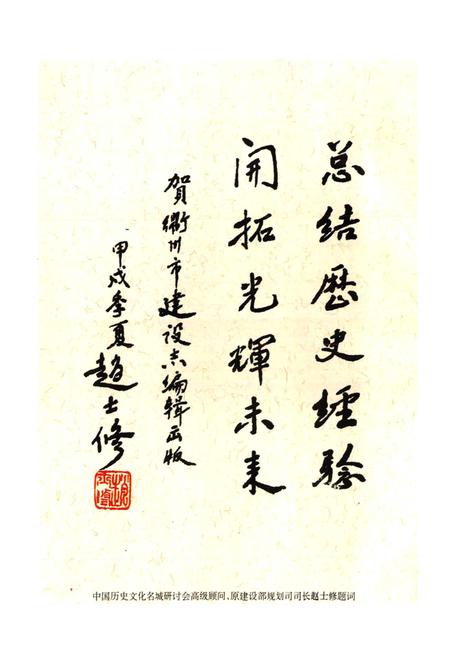 总结歷史經验
開拓光輝未来
賀衢州市建设志编辑出版
甲戌季夏
趙士修
中国历史文化名城研讨会高级顾问、原建设部规划司司长赵士修题词